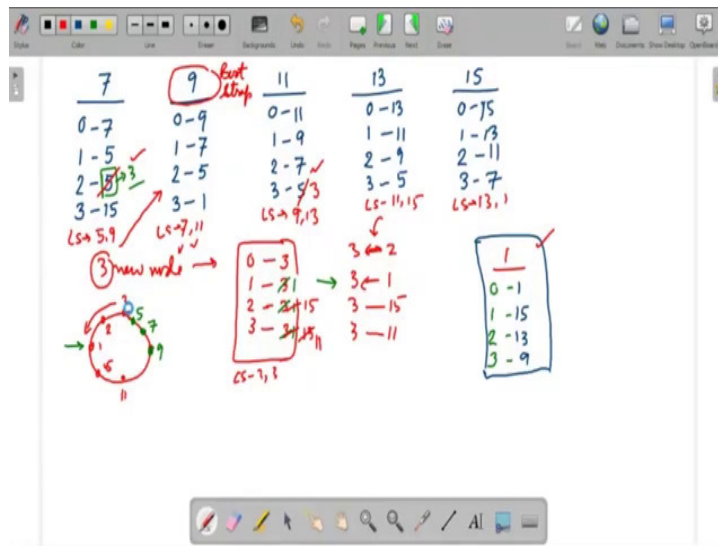 Stylus
Color
Line
Eraser
Backgrounds
Undo
Redo
Pages
Previous
Next
Erase
Board
Web
Documents
Show Desktop
OpenBoard
7
0 - 7
1 - 5
2 - 5 → 3
3 - 15
LS → 5, 9
9
Boot
Strap
0 - 9
1 - 7
2 - 5
3 - 1
LS → 7, 11
11
0 - 11
1 - 9
2 - 7
3 - 5 3
LS → 9, 13
13
0 - 13
1 - 11
2 - 9
3 - 5
LS - 11, 15
15
0 - 15
1 - 13
2 - 11
3 - 7
LS → 13, 1
3 new node →
0 - 3
1 - 3 1
2 - 3 1 15
3 - 3 1 15 11
3 ← 2
3 ← 1
3 - 15
3 - 11
1
0 - 1
1 - 15
2 - 13
3 - 9
3
2
5
7
1
9
15
11
AI